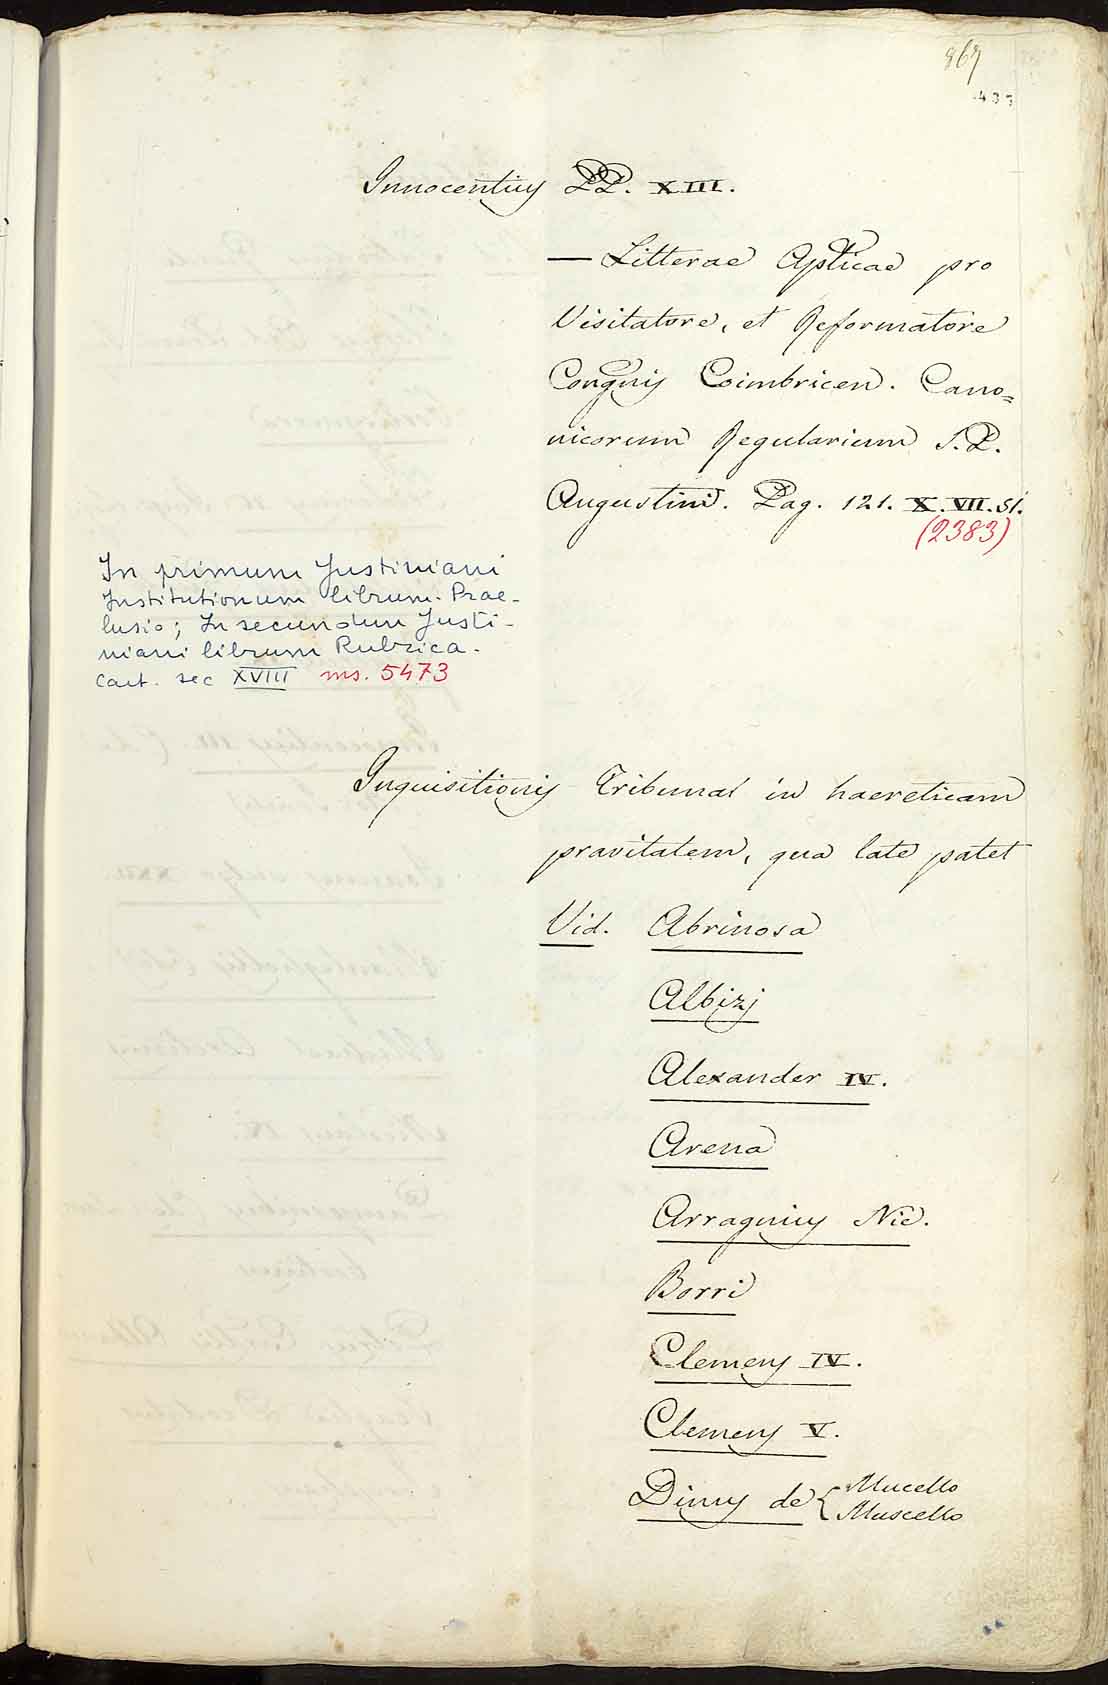 433
Innocentius PP. XIII.
— Litterae Aplicae pro
Visitatore, et Reformatore
Congnis Coimbricen. Cano=
nicorum Regularium S. P.
Augustini. Pag. 121. X. VII. 51.
(2383)
In primum Justiniani
Institutionum librum. Prae-
lusio; In secundum Justi-
niani librum Rubrica.
Cart. sec XVIII ms. 5473
Inquisitionis Tribunal in haereticam
pravitatem, qua late patet
Vid. Abrinosa
Albizj
Alexander IV.
Arena
Arragnius Nic.
Borri
Clemens IV.
Clemens V.
Dinus de { Mucello
Muscello